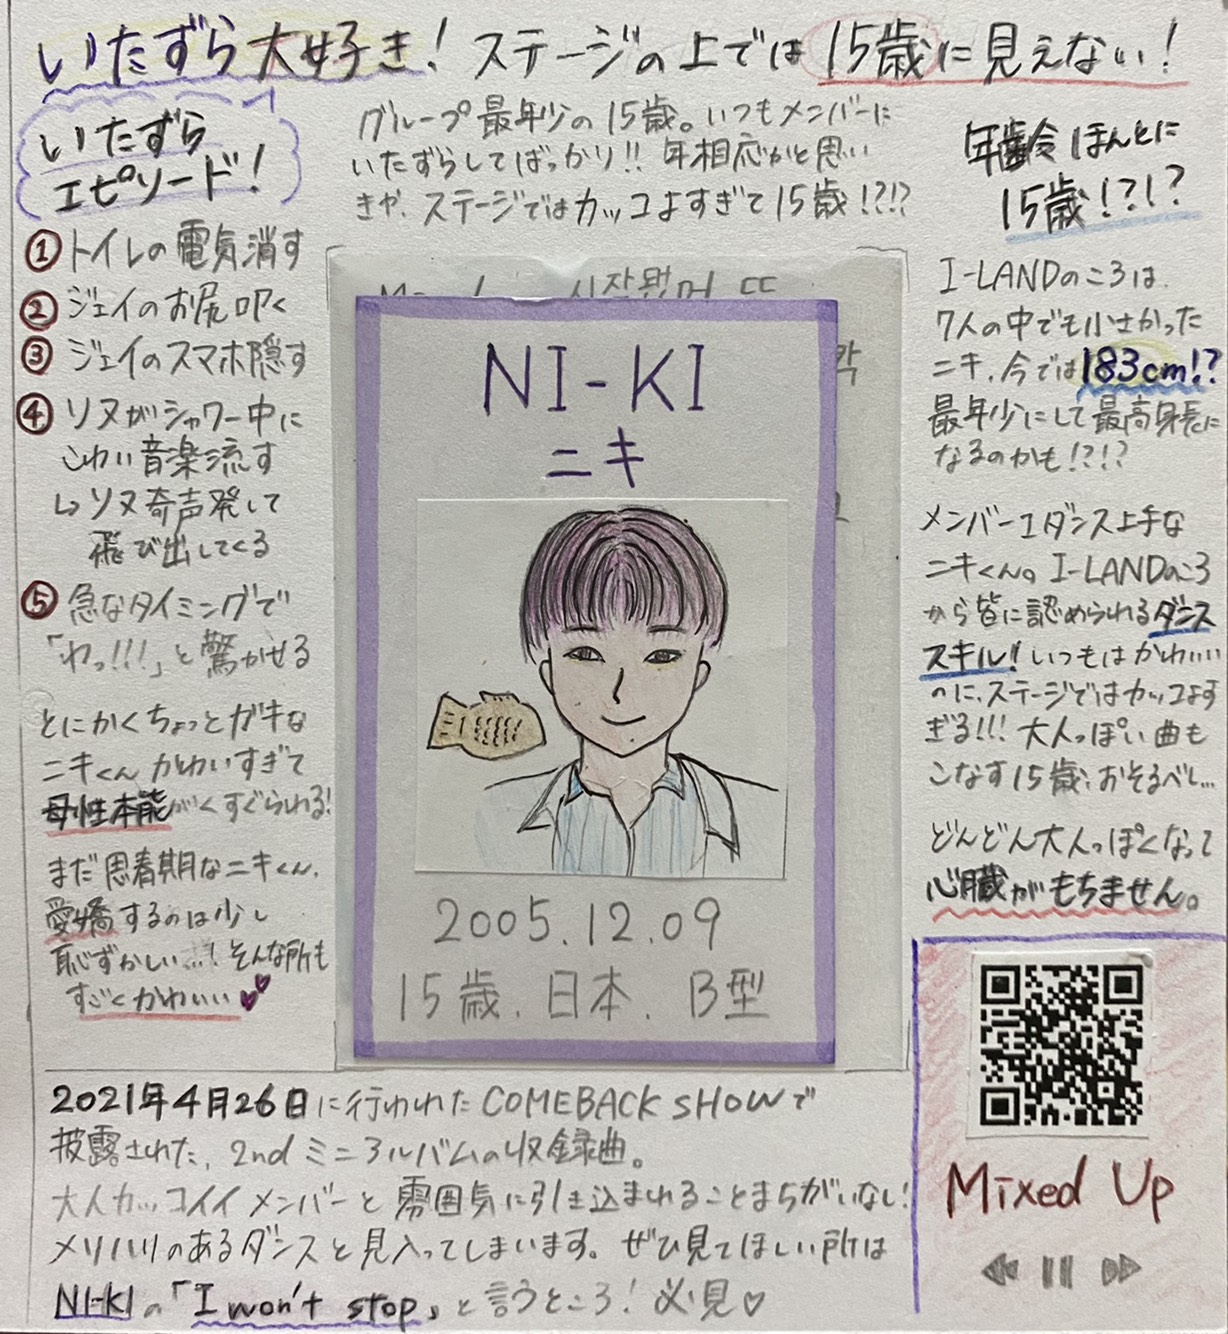 いたずら大好き！ステージの上では15歳に見えない！
いたずら
エピソード！
①トイレの電気消す
②ジェイのお尻叩く
③ジェイのスマホ隠す
④ソヌがシャワー中に
こわい音楽流す
↳ソヌ奇声発して
飛び出してくる
⑤急なタイミングで
「わっ!!!」と驚かせる
とにかくちょっとガキな
ニキくんかわいすぎて
母性本能がくすぐられる！
まだ思春期なニキくん、
愛嬌するのは少し
恥ずかしい…！そんな所も
すごくかわいい♥♥
グループ最年少の15歳。いつもメンバーに
いたずらしてばっかり!! 年相応かと思い
きや、ステージではカッコよすぎて15歳!?!?
NI-KI
ニキ
2005.12.09
15歳、日本、B型
年齢ほんとに
15歳!?!?
I-LANDのころは、
7人の中でも小さかった
ニキ、今では183cm!?
最年少にして最高身長に
なるのかも!?!?
メンバー1ダンス上手な
ニキくん。I-LANDのころ
から皆に認められるダンス
スキル！いつもはかわいい
のに、ステージではカッコよす
ぎる!!! 大人っぽい曲も
こなす15歳、おそるべし…
どんどん大人っぽくなって
心臓がもちません。
2021年4月26日に行われたCOMEBACK SHOWで
披露された、2ndミニアルバムの収録曲。
大人カッコイイメンバーと雰囲気に引き込まれることまちがいない！
メリハリのあるダンスと見入ってしまいます。ぜひ見てほしい所は
NI-KIの「I won't stop」と言うところ！必見♡
Mixed Up